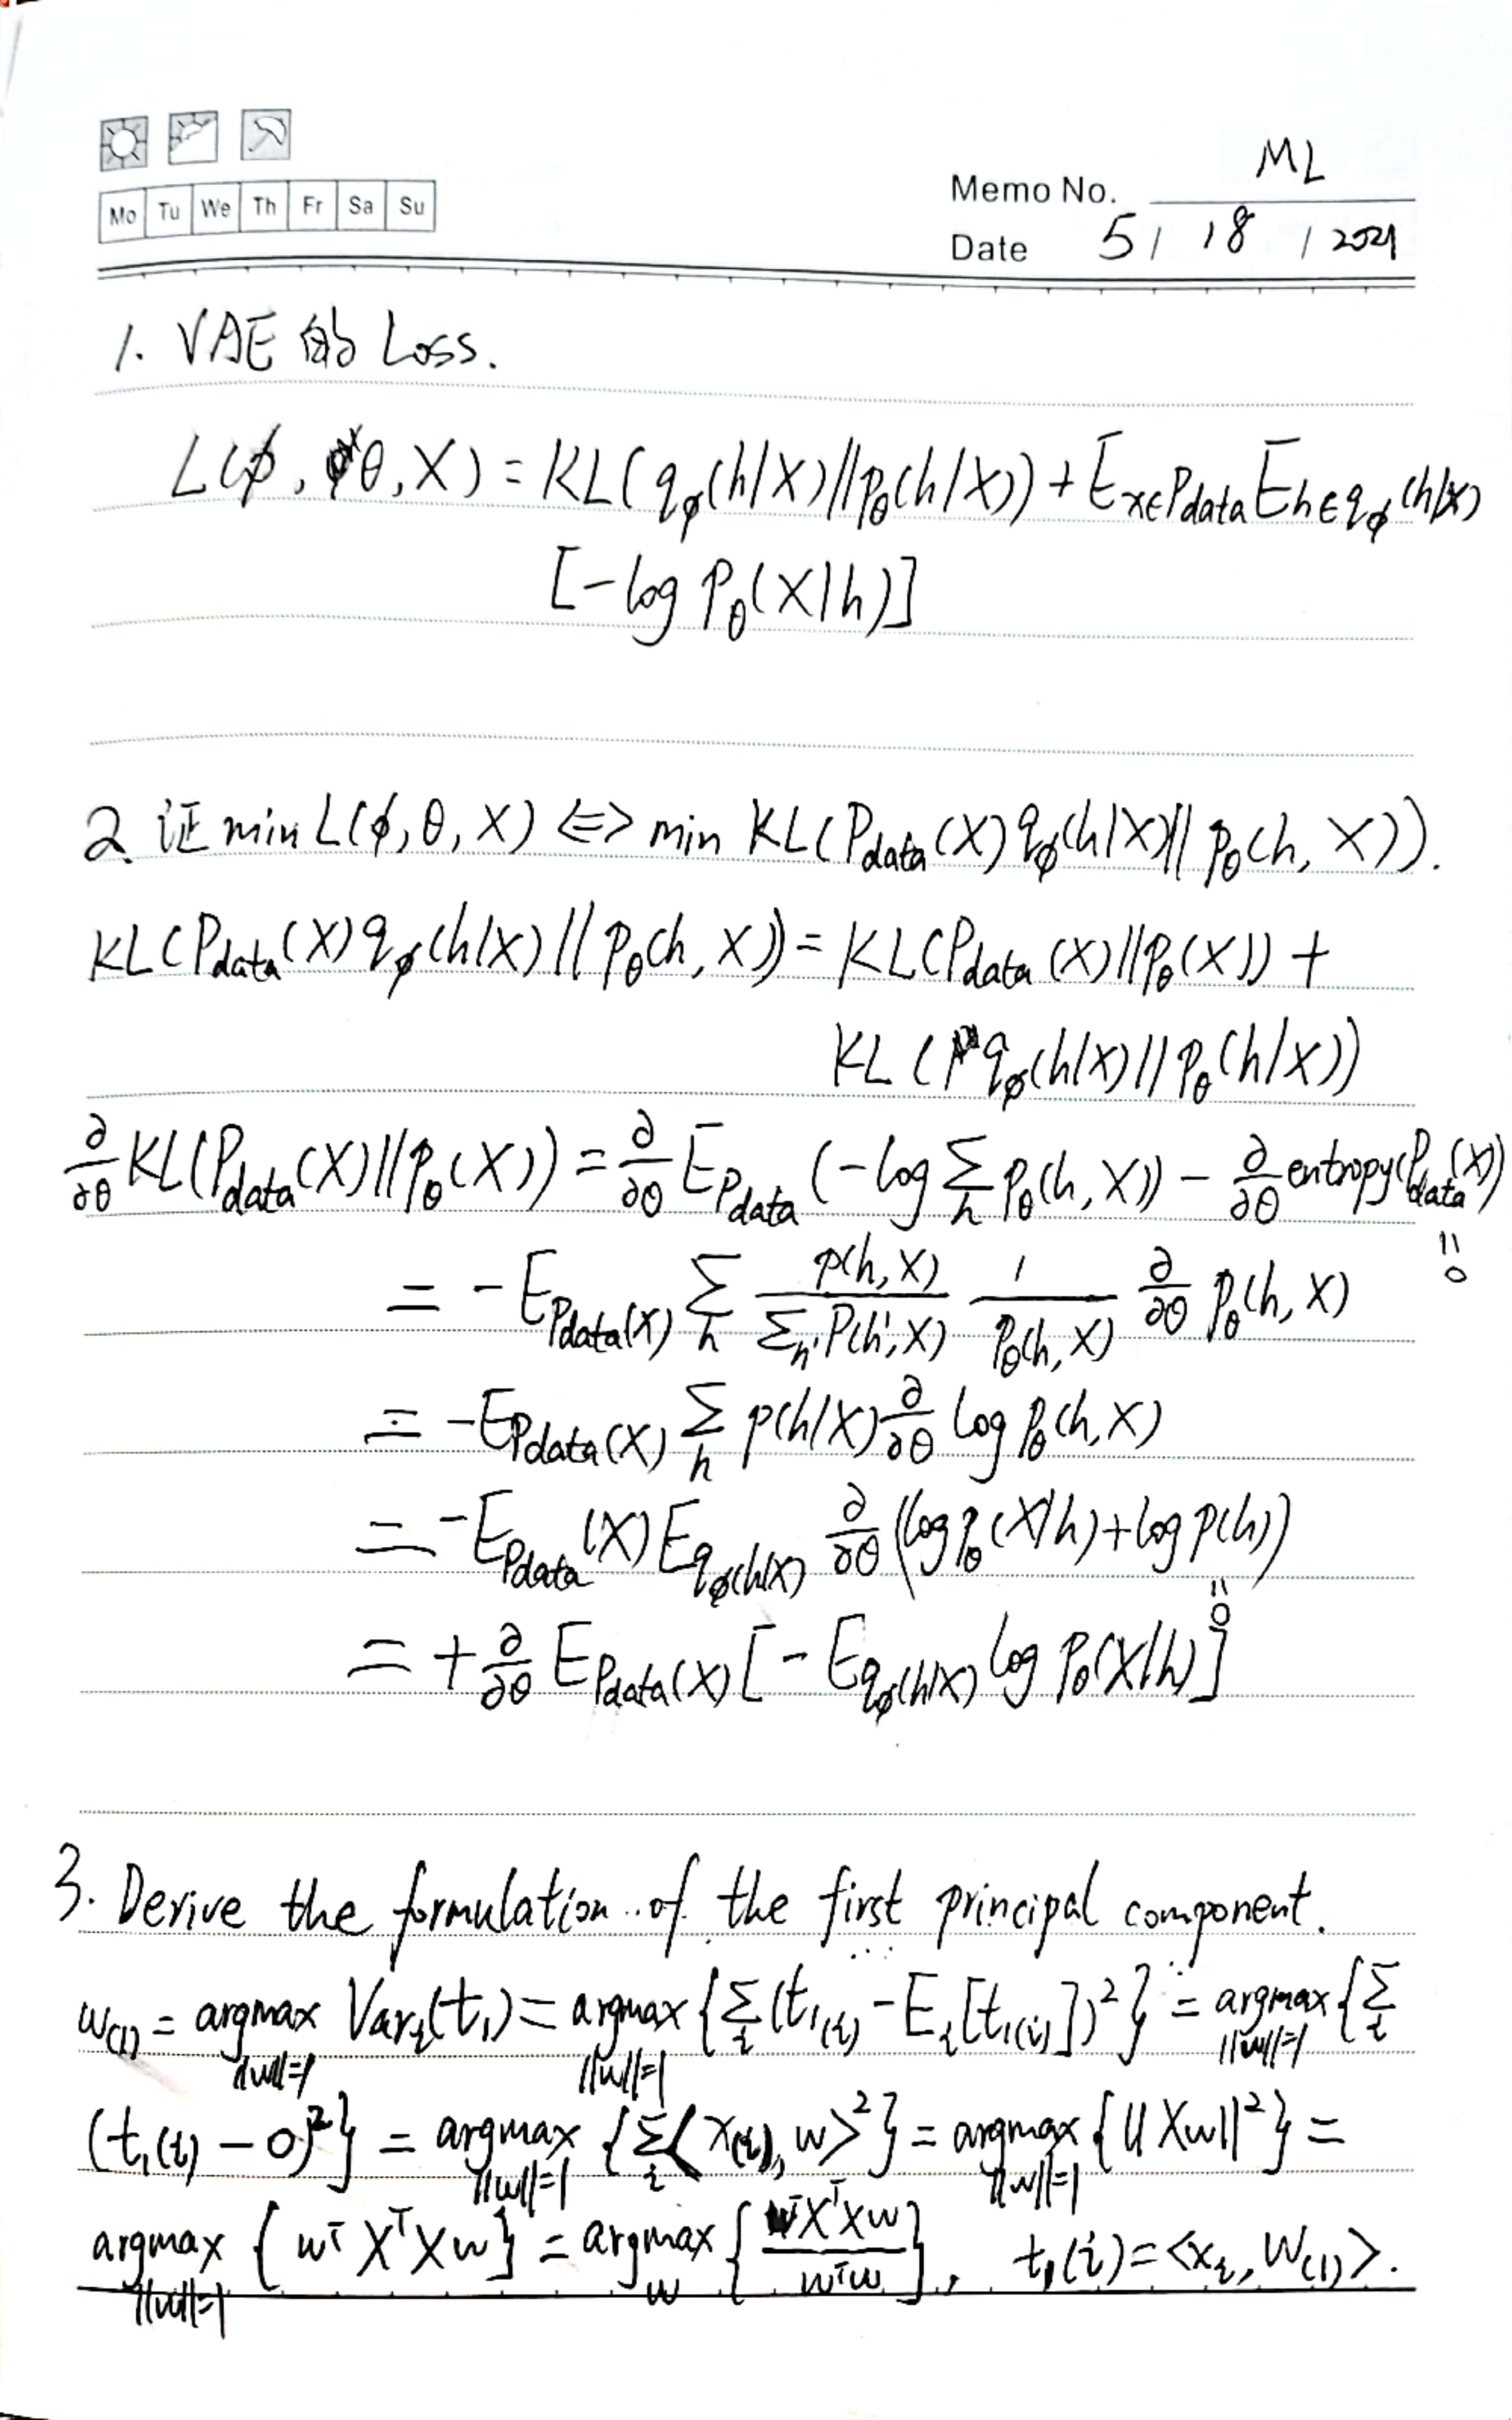 Mo Tu We Th Fr Sa Su
Memo No. ML
Date 5 / 18 / 2021
1. VAE 的 Loss.
L(ϕ, θ, X) = KL(q_ϕ(h|X)||p_θ(h|X)) + E_{x∈Pdata} E_{h∈q_ϕ(h|x)}
[-log P_θ(X|h)]
2. 证 min L(ϕ, θ, X) <=> min KL(P_data(X) q_ϕ(h|X)|| p_θ(h, X)).
KL(P_data(X) q_ϕ(h|X) || p_θ(h, X)) = KL(P_data(X)||p_θ(X)) +
KL(q_ϕ(h|X)||p_θ(h|X))
∂/∂θ KL(P_data(X)||p_θ(X)) = ∂/∂θ E_{Pdata}(-log Σ_h p_θ(h, X)) - ∂/∂θ entropy(P_data(X))
= 0
= -E_{Pdata(X)} Σ_h p(h, X)/Σ_{h'} P(h', X) 1/p_θ(h, X) ∂/∂θ p_θ(h, X)
= -E_{Pdata(X)} Σ_h p(h|X) ∂/∂θ log p_θ(h, X)
= -E_{Pdata}(X) E_{q_ϕ(h|X)} ∂/∂θ (log p_θ(X|h) + log p(h))
= 0
= + ∂/∂θ E_{Pdata(X)} [- E_{q_ϕ(h|X)} log p_θ(X|h)]
3. Derive the formulation of the first principal component.
w_(1) = argmax_{||w||=1} Var_i(t_1) = argmax_{||w||=1} {Σ_i (t_{1(i)} - E_i[t_{1(i)}])^2} = argmax_{||w||=1} {Σ_i
(t_1(i) - 0)^2} = argmax_{||w||=1} {Σ_i <x_(i), w>^2} = argmax_{||w||=1} {||Xw||^2} =
argmax_{||w||=1} {w^T X^T X w} = argmax_w {w^T X^T X w / w^T w}, t_1(i) = <x_i, W_(1)>.